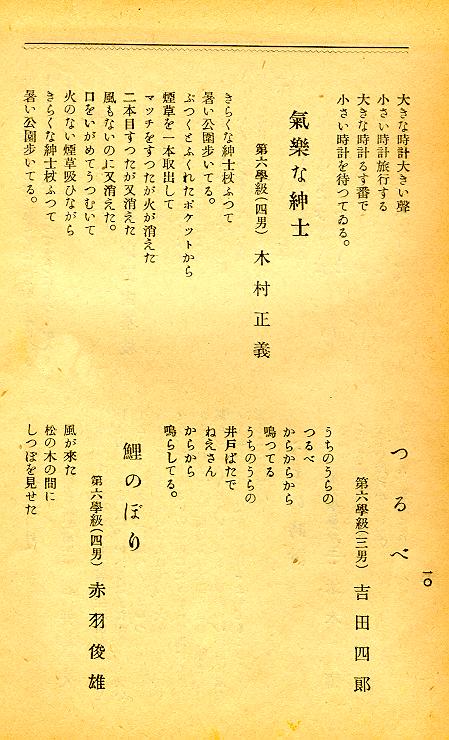 大きな時計大きい聲
小さい時計旅行する
大きな時計るす番で
小さい時計を待つてゐる。
氣樂な紳士
第六學級(四男) 木村正義
きらくな紳士杖ふつて
暑い公園歩いてる。
ぷつくとふくれたポケットから
煙草を一本取出して
マッチをすつたが火が消えた
二本目すつたが又消えた
風もないのに又消えた。
口をいがめてうつむいて
火のない煙草吸ひながら
きらくな紳士杖ふつて
暑い公園歩いてる。
つるべ
第六學級(三男) 吉田四郞
うちのうらの
つるべ
からからから
鳴つてる
うちのうらの
井戸ばたで
ねえさん
からから
鳴らしてる。
鯉のぼり
第六學級(四男) 赤羽俊雄
風が來た
松の木の間に
しつぽを見せた
一〇